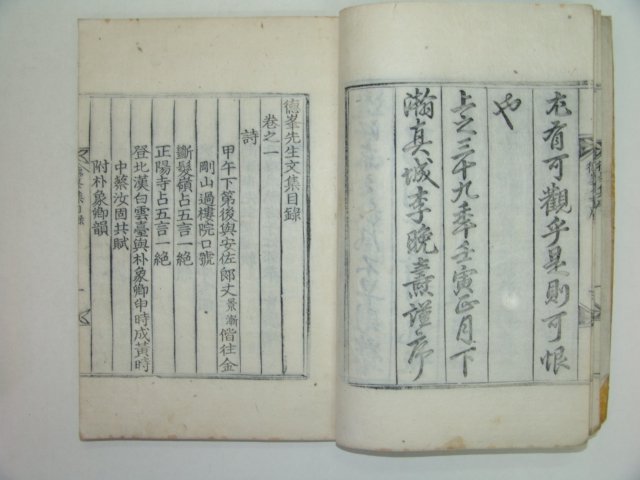 尤有可觀乎是則可恨
也
上之三十九年壬寅正月下
瀚真城李晚燾謹序
德峯先生文集目錄
卷之一
詩
甲午下第後與安佐郎丈景漸偕往金
剛山過樓院口號
斷髮嶺占五言一絶
正陽寺占五言一絶
登北漢白雲臺與朴象卿申時成黃時
中蔡汝固共賦
附朴象卿韻